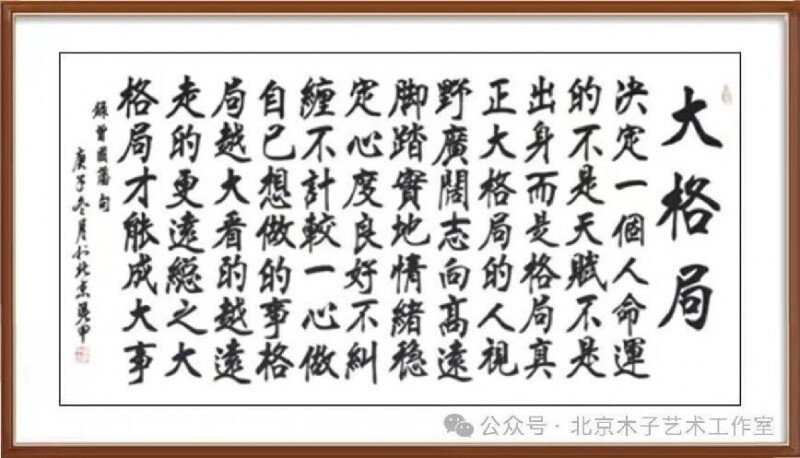 大格局
決定一個人命運
的不是天賦不是
出身而是格局真
正大格局的人視
野廣闊志向髙遠
脚踏實地情緒穩
定心度良好不糾
纏不計較一心做
自己想做的事格
局越大看的越遠
走的更遠總之大
格局才能成大事
錄曾國藩句
庚子冬月於北京
公众号·北京木子艺术工作室